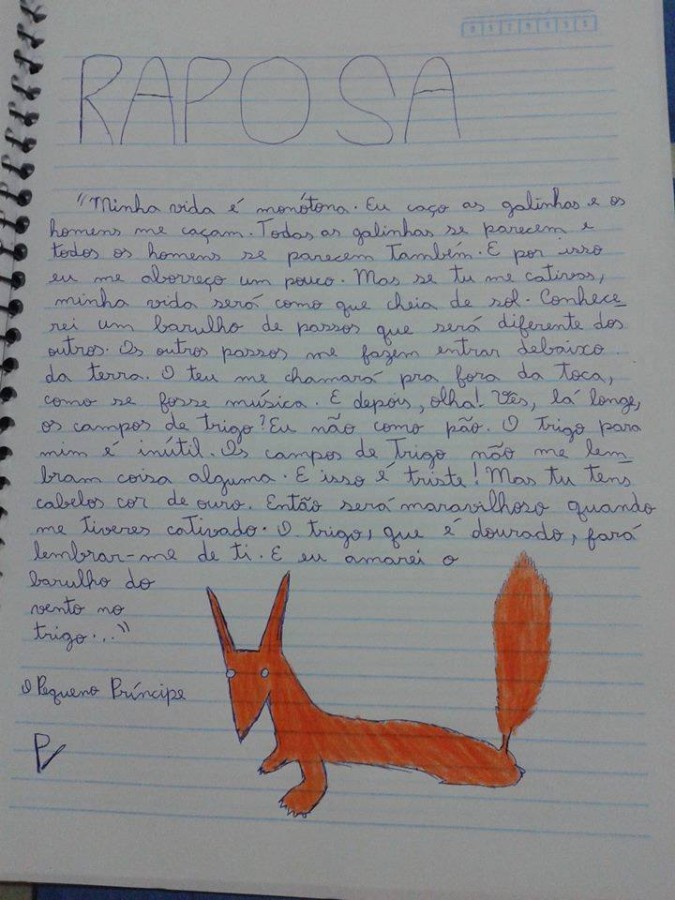 RAPOSA
"Minha vida é monótona. Eu caço as galinhas e os
homens me caçam. Todas as galinhas se parecem e
todos os homens se parecem também. E por isso
eu me aborreço um pouco. Mas se tu me cativas,
minha vida será como que cheia de sol. Conhece
rei um barulho de passos que será diferente dos
outros. Os outros passos me fazem entrar debaixo
da terra. O teu me chamará pra fora da toca,
como se fosse música. E depois, olha! Vês, lá longe,
os campos de trigo? Eu não como pão. O trigo para
mim é inútil. Os campos de trigo não me lem
bram coisa alguma. E isso é triste! Mas tu tens
cabelos cor de ouro. Então será maravilhoso quando
me tiveres cativado. O trigo, que é dourado, fará
lembrar-me de ti. E eu amarei o
barulho do
vento no
trigo..."
O Pequeno Príncipe